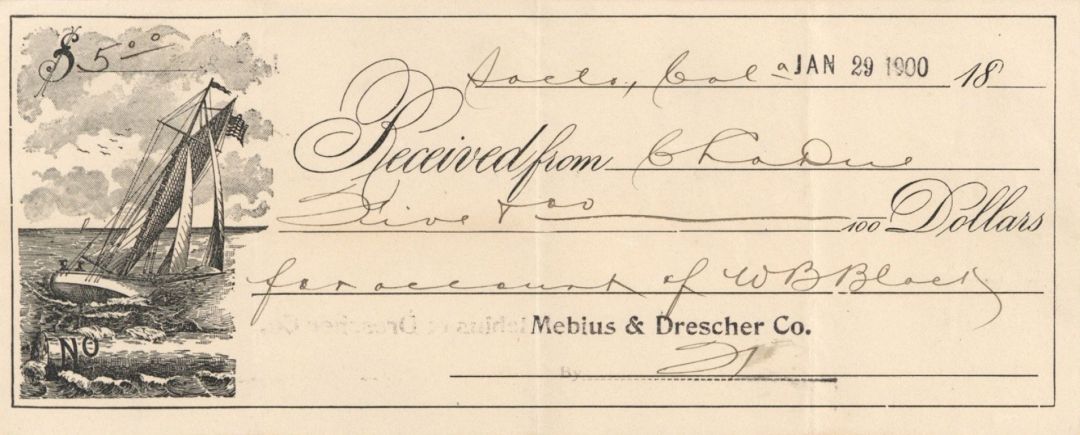 $ 5 00
Sacto, Cal a JAN 29 1900 18
Received from
Five & 00 /100 Dollars
for account of W B Block
Mebius & Drescher Co.
By
No